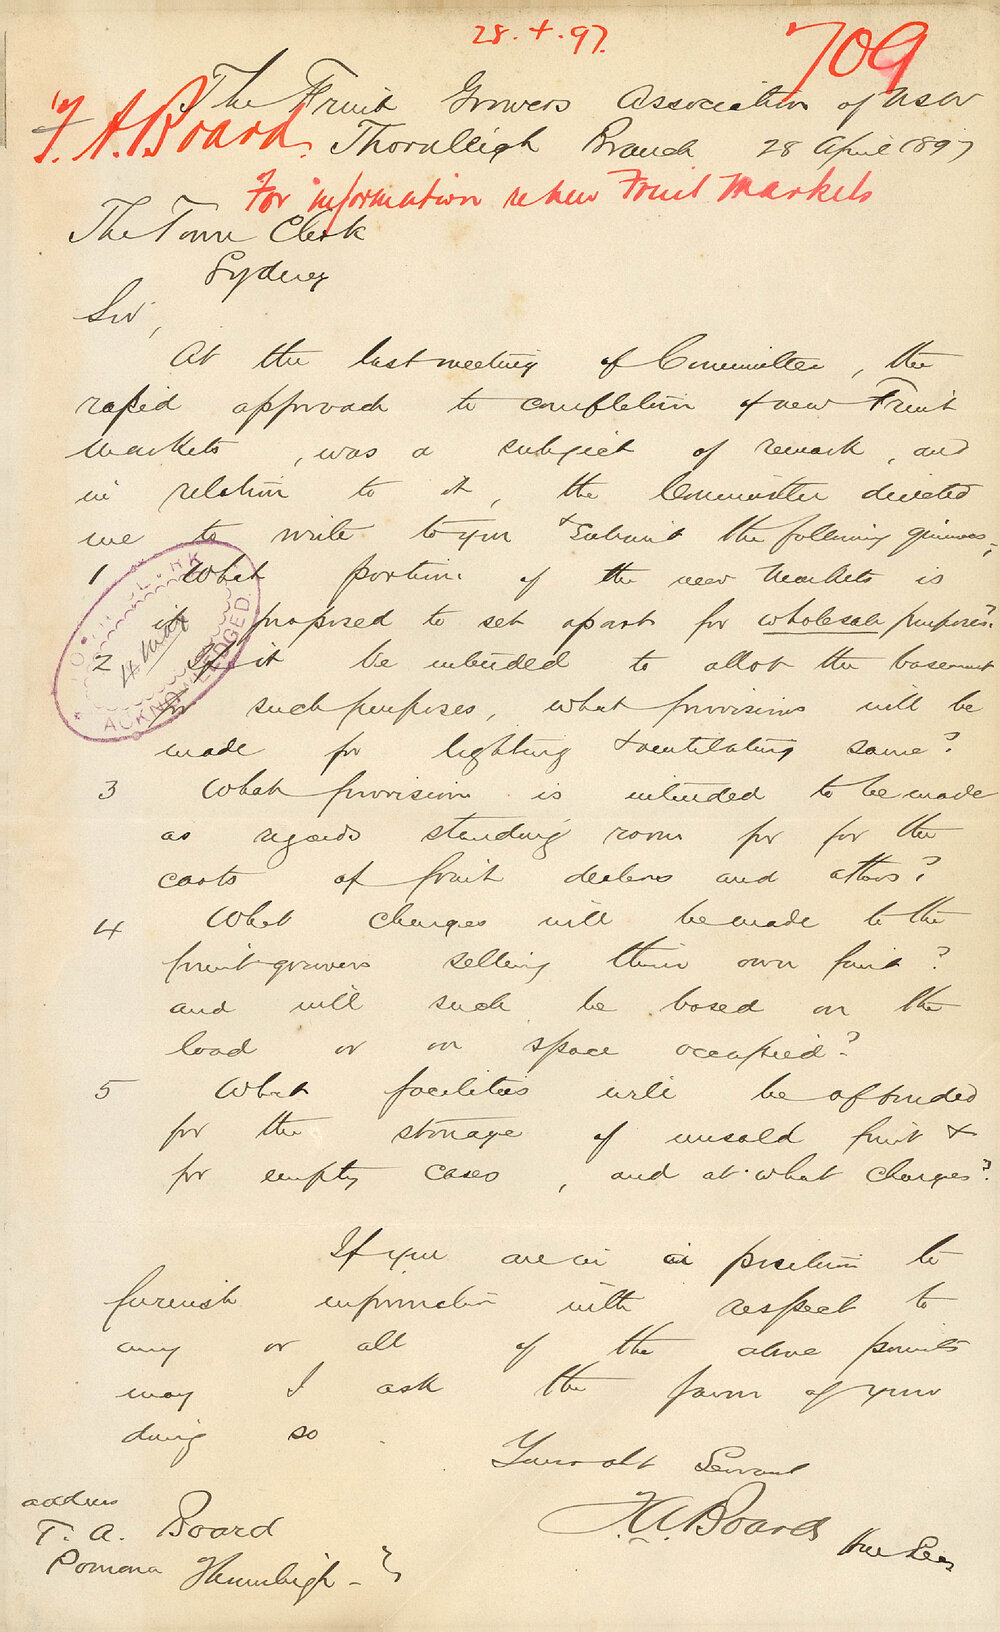 28.4.97.
709
The Fruit Growers Association of NSW
T. A. Board. Thornleigh Branch 28 April 1897
For information re new Fruit Markets
The Town Clerk
Sydney
Sir,
At the last meeting of Committee, the
rapid approach to completion of new Fruit
Markets, was a subject of remark, and
in relation to it, the Committee directed
me to write to you & submit the following queries,
1 What portion of the new Markets is
it proposed to set apart for wholesale purposes?
2 If it be intended to allot the basement
for such purposes, what provisions will be
made for lighting & ventilating same?
3 What provision is intended to be made
as regards standing room for for the
carts of fruit dealers and others?
4 What charges will be made to the
fruit-growers selling their own fruit?
and will such be based on the
load or on space occupied?
5 What facilities will be afforded
for the storage of unsold fruit &
for empty cases, and at what charges?
If you are in a position to
furnish information with respect to
any or all of the above points
may I ask the favor of your
doing so.
Your obt Servant
T. A. Board Hon Sec
address
T. A. Board
Pomona Thornleigh
TOWN CLERK
4 May
ACKNOWLEDGED